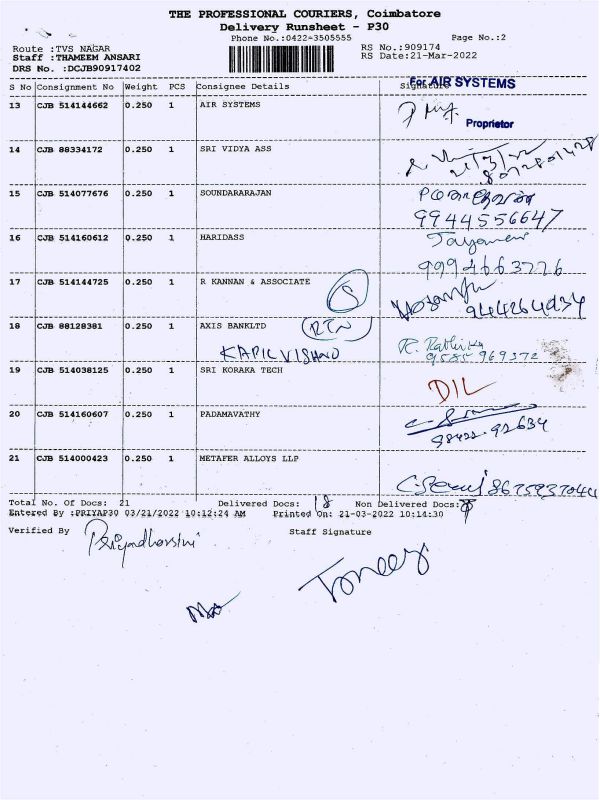 THE PROFESSIONAL COURIERS, Coimbatore
Delivery Runsheet - P30
Phone No.:0422-3505555 Page No.:2
Route :TVS NAGAR RS No.:909174
Staff :THAMEEM ANSARI RS Date:21-Mar-2022
DRS No. :DCJB90917402
For AIR SYSTEMS
S No Consignment No Weight PCS Consignee Details Signature
13 CJB 514144662 0.250 1 AIR SYSTEMS
Proprietor
14 CJB 88334172 0.250 1 SRI VIDYA ASS
15 CJB 514077676 0.250 1 SOUNDARARAJAN
9944556647
16 CJB 514160612 0.250 1 HARIDASS
9994663726
17 CJB 514144725 0.250 1 R KANNAN & ASSOCIATE
S
18 CJB 88128381 0.250 1 AXIS BANKLTD RTN
KAPIL VISHNU R. Rathika
9585 969372
19 CJB 514038125 0.250 1 SRI KORAKA TECH
DIL
20 CJB 514160607 0.250 1 PADAMAVATHY
98422-92634
21 CJB 514000423 0.250 1 METAFER ALLOYS LLP
Total No. Of Docs: 21 Delivered Docs: 18 Non Delivered Docs:
Entered By :PRIYAP30 03/21/2022 10:12:24 AM Printed On: 21-03-2022 10:14:30
Verified By Priyadharsini Staff Signature